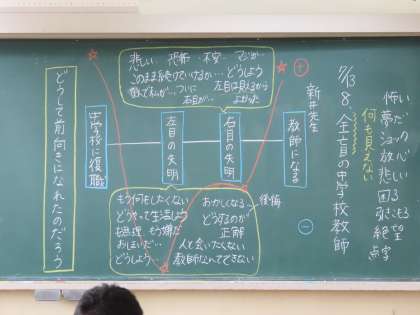 7/13
8、全盲の中学校教師
何も見えない
怖い
夢だ
ショック
放心
悲しい
困る
引きこもる
絶望
点字
新井先生
教師になる
右目の失明
左目の失明
中学校に復職
どうして前向きになれたのだろう
悲しい・恐怖・不安・マジか…
このまま続けていけるか…どうしよう
何で私が…ついに
右目が…
左目は見えるから
よかった
もう何もしたくない
どうやって生活しよう
もう無理 もう嫌だ
どうしよう…
おかしくなる
どうするのが
正解
人と会いたくない
教師なんてできない
後悔
＋
－